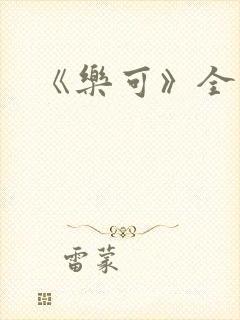 《樂可》全
雷蒙